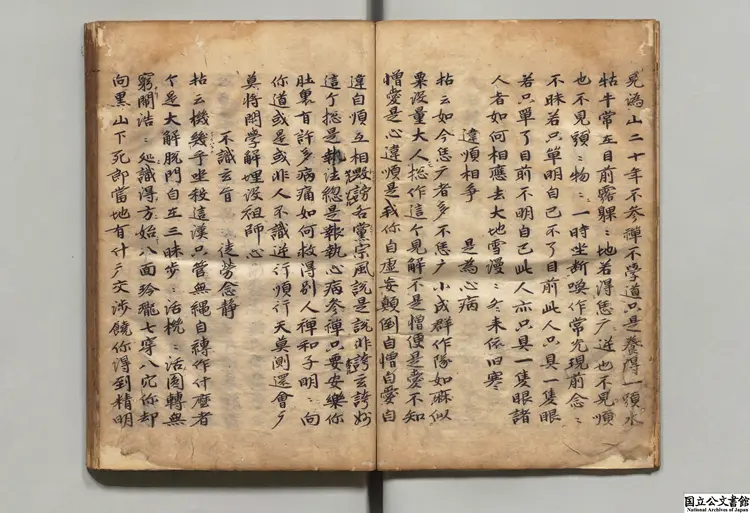 見溈山二十年不參禪不學道只是養得一頭水
牯牛常在目前露躶〻地若得恁广逆也不見順
也不見頭〻物〻一時坐断喚作常光現前念〻
不昧若只單明自己不了目前此人只具一隻眼
若只單了目前不明自己此人亦只具一隻眼諸
人者如何相應去大地雪漫〻冬来依旧寒
違順相爭 是為心病
拈云如今恁广者多不恁广小成群作隊如麻似
粟没量大人揔作這个見解不是憎便是愛不知
憎愛是心違順是我你自虚妄顛倒自憎自愛自
違自順互相毀謗各賞宗風說是說非誇玄誇妙
這个揔是執法總是執心病參禅只要安樂你
肚裏有許多病痛如何救得別人禅和子明〻向
你道或是或非人不識逆行順行天莫測還會广
莫將閑學解埋没祖師心
不識玄旨 徒劳念静
拈云機幾乎坐殺這漢只管無縄自縛作什麼者
个是大解脱門自在三昧步〻活橛〻活圈轉無
窮鬧浩〻処識得方始八面玲瓏七穿八穴你却
向黒山下死郎當地有什广交渉饒你得到精明
国立公文書館
National Archives of Japan